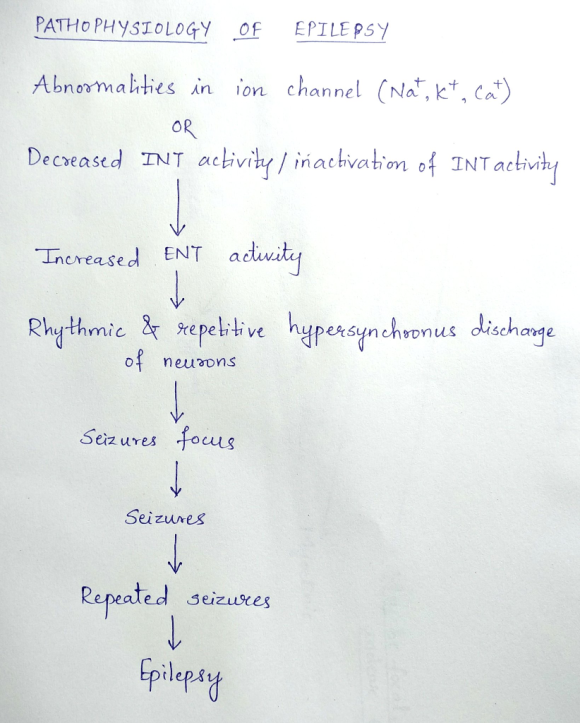 PATHOPHYSIOLOGY OF EPILEPSY
Abnormalities in ion channel (Na⁺, K⁺, Ca⁺)
OR
Decreased INT activity / inactivation of INT activity
Increased ENT activity
Rhythmic & repetitive hypersynchronus discharge
of neurons
Seizures focus
Seizures
Repeated seizures
Epilepsy